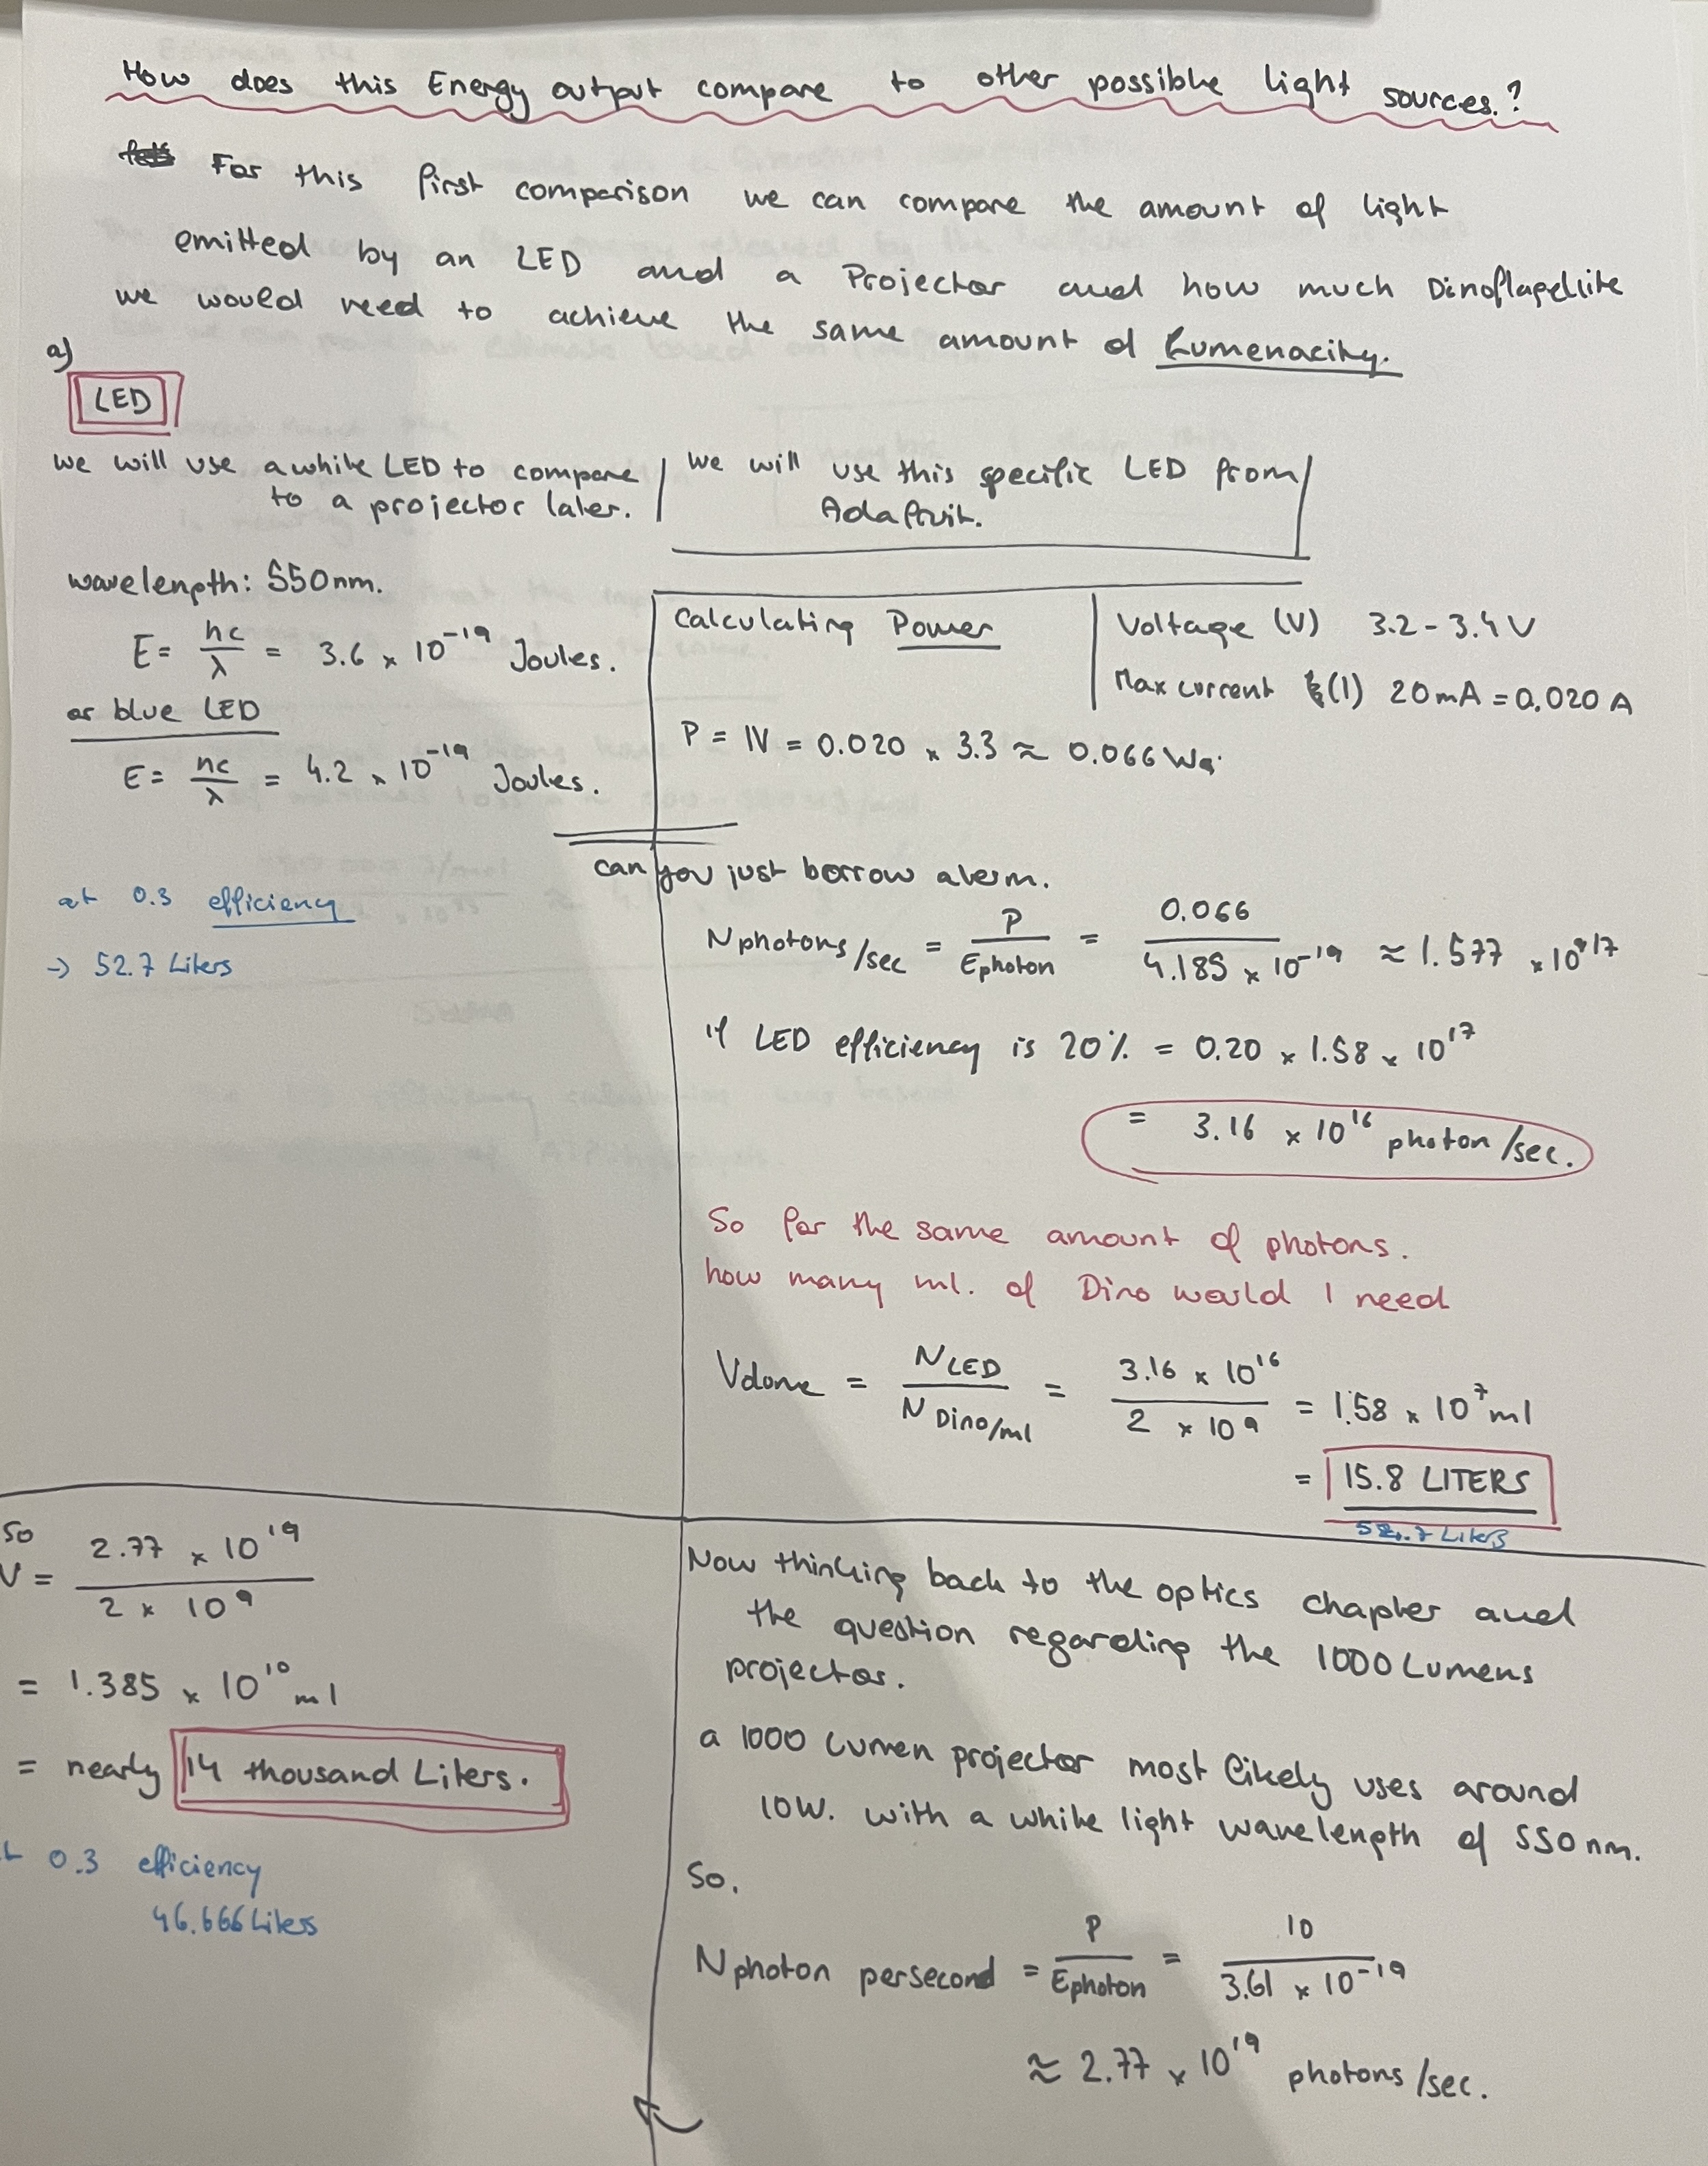 How does this Energy output compare to other possible light sources?
For this first comparison we can compare the amount of light
emitted by an LED and a Projector and how much Dinoflagellite
we would need to achieve the same amount of Lumenacity.
a)
LED
we will use a white LED to compare
to a projector later.
we will use this specific LED from
Adafruit.
wavelength: 550nm.
E = hc/λ = 3.6 × 10^-19 Joules.
or blue LED
E = hc/λ = 4.2 × 10^-19 Joules.
Calculating Power
Voltage (V) 3.2 - 3.4 V
Max current (I) 20mA = 0.020 A
P = IV = 0.020 × 3.3 ≈ 0.066
at 0.3 efficiency
→ 52.7 Liters
can you just borrow
N photons/sec = P / E photon = 0.066 / 4.185 × 10^-19 ≈ 1.577 × 10^17
If LED efficiency is 20% = 0.20 × 1.58 × 10^17
= 3.16 × 10^16 photon/sec.
So for the same amount of photons.
how many ml. of Dino would I need
Volume = N LED / N Dino/ml = 3.16 × 10^16 / 2 × 10^9 = 1.58 × 10^7 ml
= 15.8 LITERS
52.7 Liters
Now thinking back to the optics chapter and
the question regarding the 1000 Lumens
projector.
a 1000 Lumen projector most likely uses around
10W. with a white light wavelength of 550 nm.
So,
N photon per second = P / E photon = 10 / 3.61 × 10^-19
≈ 2.77 × 10^19 photons/sec.
so
V = 2.77 × 10^19 / 2 × 10^9
= 1.385 × 10^10 ml
= nearly 14 thousand Liters.
0.3 efficiency
46.666 Liters